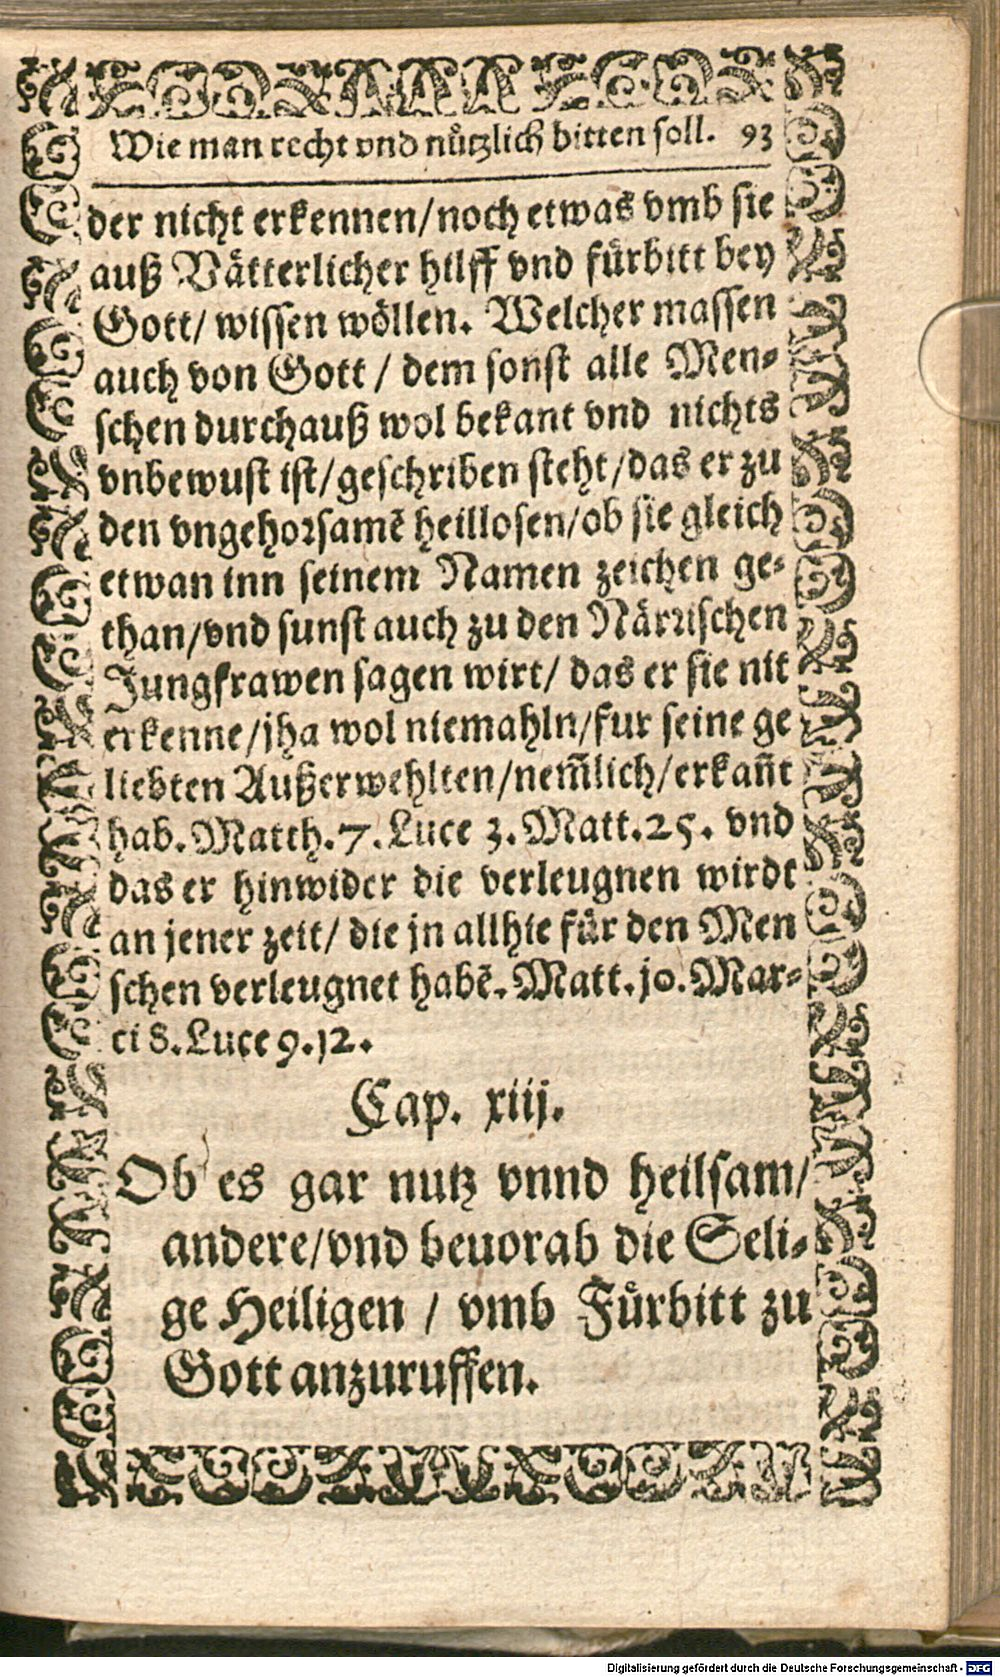 Wie man recht vnd nuͤtzlich bitten soll. 93
der nicht erkennen/noch etwas vmb sie
auß Vaͤtterlicher hilff vnd fuͤrbitt bey
Gott/ wissen woͤllen. Welcher massen
auch von Gott / dem sonst alle Men-
schen durchauß wol bekant vnd nichts
vnbewust ist/geschriben steht/das er zu
den vngehorsamẽ heillosen/ob sie gleich
etwan inn seinem Namen zeichen ge-
than/vnd sunst auch zu den Naͤrrischen
Jungfrawen sagen wirt/ das er sie nit
erkenne/jha wol niemahln/fur seine ge
liebten Außerwehlten/nem̃lich/erkañt
hab. Matth. 7. Luce 3. Matt. 25. vnd
das er hinwider die verleugnen wirdt
an jener zeit/ die jn allhie fuͤr den Men
schen verleugnet habẽ. Matt. jo. Mar-
ci 8. Luce 9. j2.
Cap. xiij.
Ob es gar nutz vnnd heilsam/
andere/vnd beuorab die Seli-
ge Heiligen / vmb Fuͤrbitt zu
Gott anzuruffen.
Digitalisierung gefördert durch die Deutsche Forschungsgemeinschaft - DFG